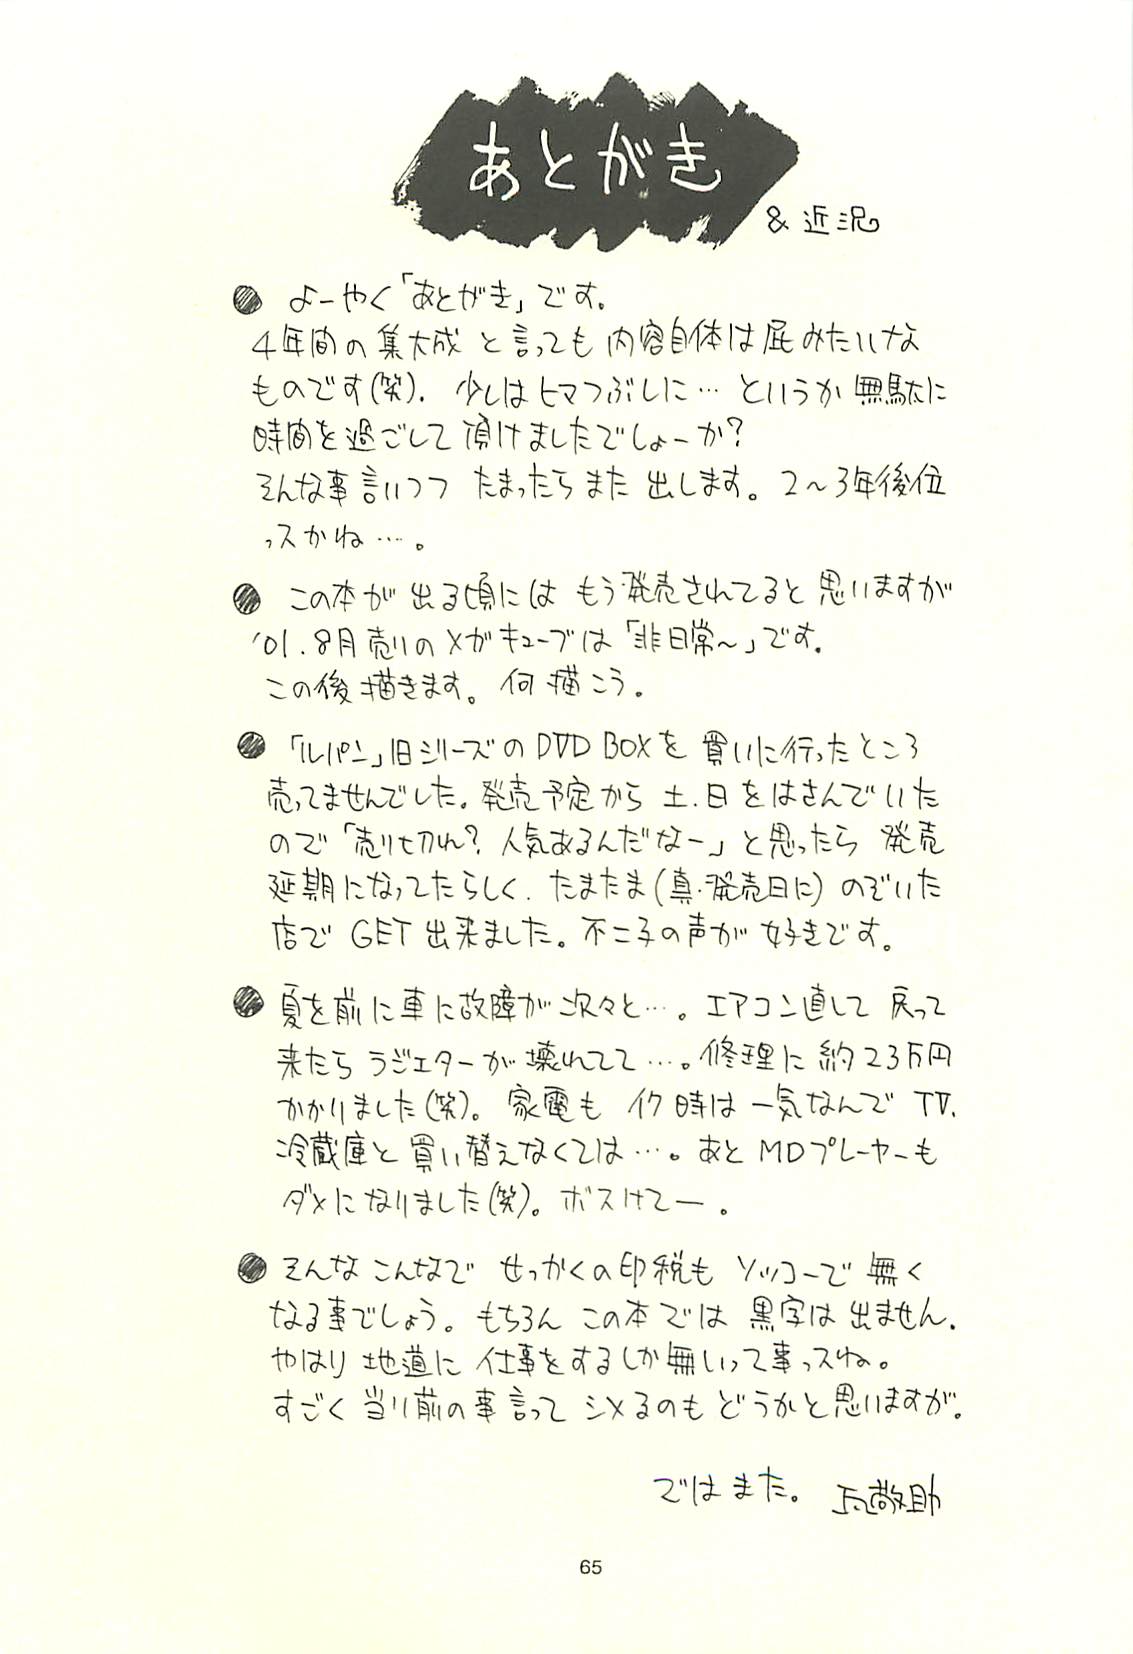 あとがき
& 近況
● よーやく「あとがき」です。
4年間の集大成と言っても内容自体は屁みたいな
ものです(笑)。少しはヒマつぶしに…というか無駄に
時間を過ごして頂けましたでしょーか?
そんな事言いつつたまったらまた出します。2〜3年後位
っスかね…。
● この本が出る頃にはもう発売されてると思いますが
'01.8月売りのメガキューブは「非日常〜」です。
この後描きます。何描こう。
● 「ルパン」旧シリーズのDVD BOXを買いに行ったところ
売ってませんでした。発売予定から土.日をはさんでいた
ので「売り切れ?人気あるんだなー」と思ったら発売
延期になってたらしく.たまたま(真・発売日に)のぞいた
店でGET出来ました。不二子の声が好きです。
● 夏を前に車に故障が次々と…。エアコン直して戻って
来たらラジエターが壊れてて…。修理に約23万円
かかりました(笑)。家電もイク時は一気なんでTV.
冷蔵庫と買い替えなくては…。あとMDプレーヤーも
ダメになりました(笑)。ボスけてー。
● そんなこんなでせっかくの印税もソッコーで無く
なる事でしょう。もちろんこの本では黒字は出ません.
やはり地道に仕事をするしか無いって事っスね。
すごく当り前の事言ってシメるのもどうかと思いますが。
ではまた。
65